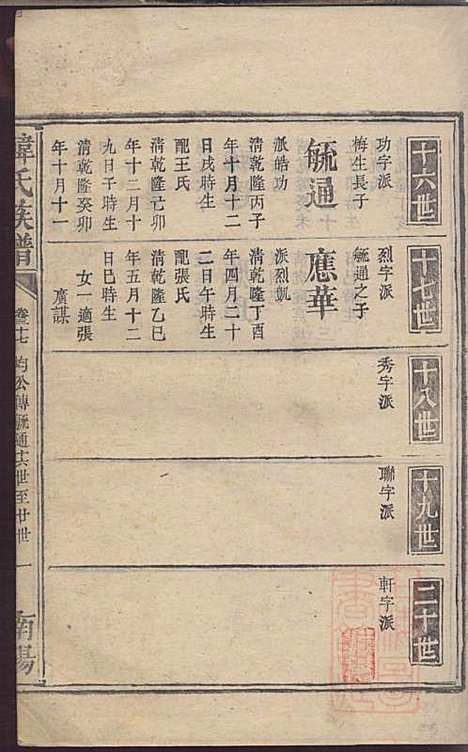 十六世
功字派
梅生長子
毓通
派皓功
清乾隆丙子
年十月十二
日戌時生
配王氏
清乾隆己卯
年十二月十
九日子時生
清乾隆癸卯
年十月十一
十七世
烈字派
毓通之子
應華
派烈凱
清乾隆丁酉
年四月二十
二日午時生
配張氏
清乾隆乙巳
年五月十二
日巳時生
女一適張
廣謀
十八世
秀字派
十九世
聯字派
二十世
軒字派
韓氏族譜
卷十七 均公傳毓通十六世至廿世 一
南陽